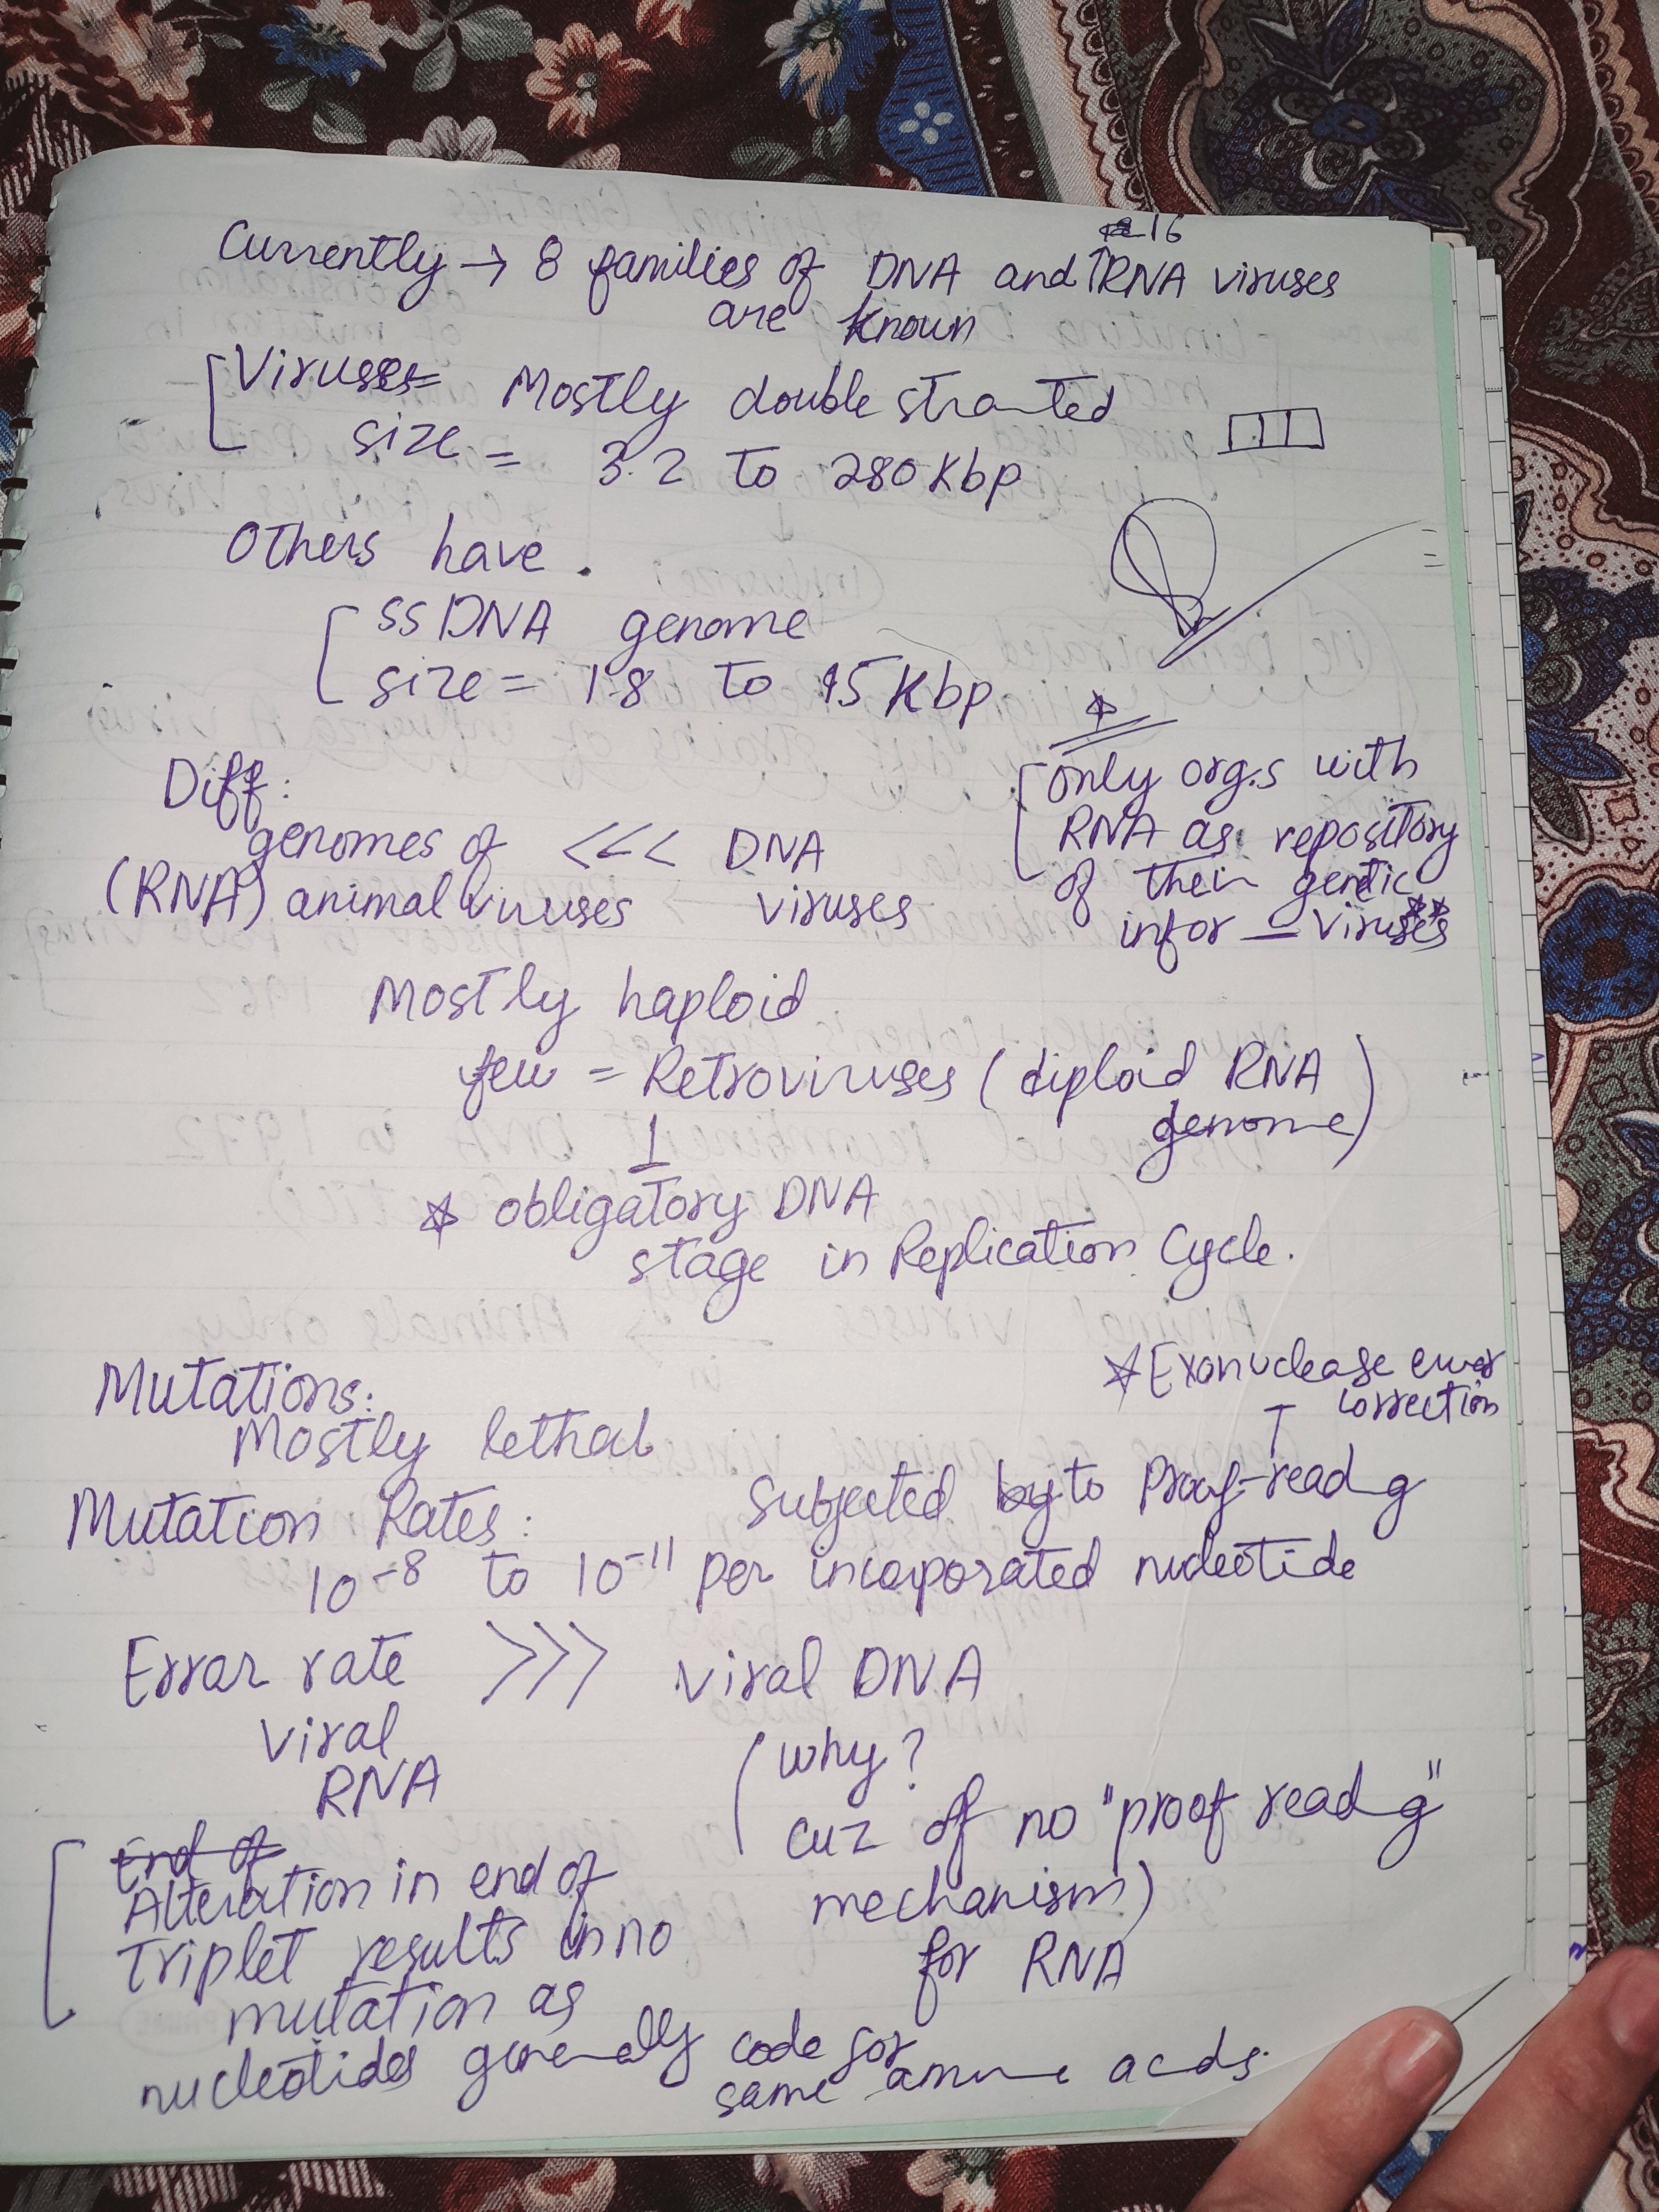 16
Currently → 8 families of DNA and ↑RNA viruses
are known
Viruses= Mostly double stranted
size = 3.2 to 280 Kbp
Others have .
SS DNA genome
size = 1.8 to 15 Kbp
only org.s with
RNA as repository
of their genetic
infor – viruses
Diff:
genomes of <<< DNA
(RNA) animal viruses viruses
Mostly haploid
few = Retroviruses (diploid RNA
genome)
☆ obligatory DNA
stage in Replication Cycle.
☆ Exonuclease error
correction
Mutations:
Mostly lethal
Subjected to Proof-readg
Mutation Rates:
10⁻⁸ to 10⁻¹¹ per incorporated nucleotide
Error rate >>> viral DNA
viral
RNA
(why?
cuz of no "proof readg"
mechanism)
for RNA
End of
Alteration in end of
Triplet results in no
mutation as
nucleotides generally code for
same amine acds.